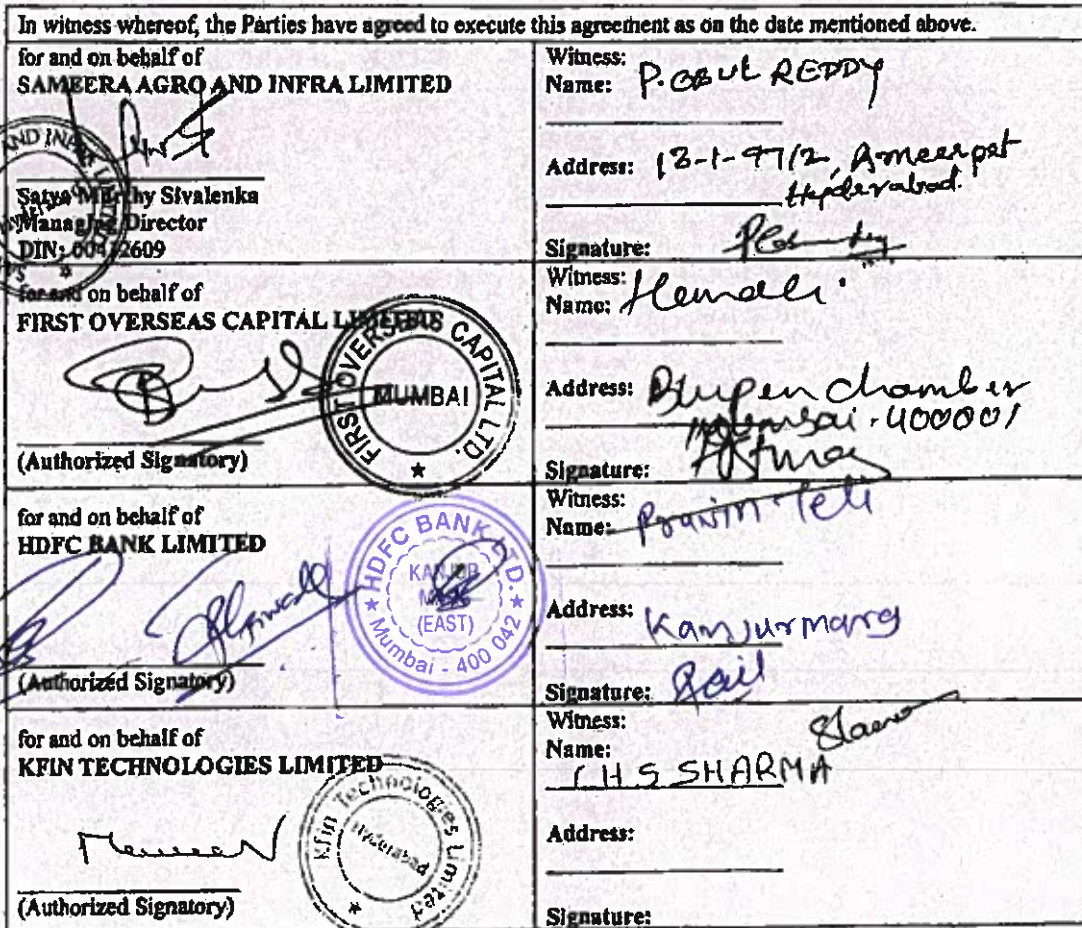 In witness whereof, the Parties have agreed to execute this agreement as on the date mentioned above.
for and on behalf of
SAMEERA AGRO AND INFRA LIMITED
AND INFRA
Satya Murthy Sivalenka
Managing Director
DIN:
Witness:
Name: P. OBUL REDDY
Address: 13-1-97/2, Ameerpet
Hyderabad.
Signature:
for and on behalf of
FIRST OVERSEAS CAPITAL LIMITED
FIRST OVERSEAS CAPITAL LTD.
MUMBAI
(Authorized Signatory)
Witness:
Name: Hemali
Address: Bhupen chamber
Mumbai - 400001
Signature:
for and on behalf of
HDFC BANK LIMITED
HDFC BANK LTD.
KANJUR
(EAST)
Mumbai - 400 042
(Authorized Signatory)
Witness:
Name: Pravin Teli
Address: Kanjurmarg
Signature:
for and on behalf of
KFIN TECHNOLOGIES LIMITED
Kfin Technologies Limited
Hyderabad
(Authorized Signatory)
Witness:
Name:
H S SHARMA
Address:
Signature: